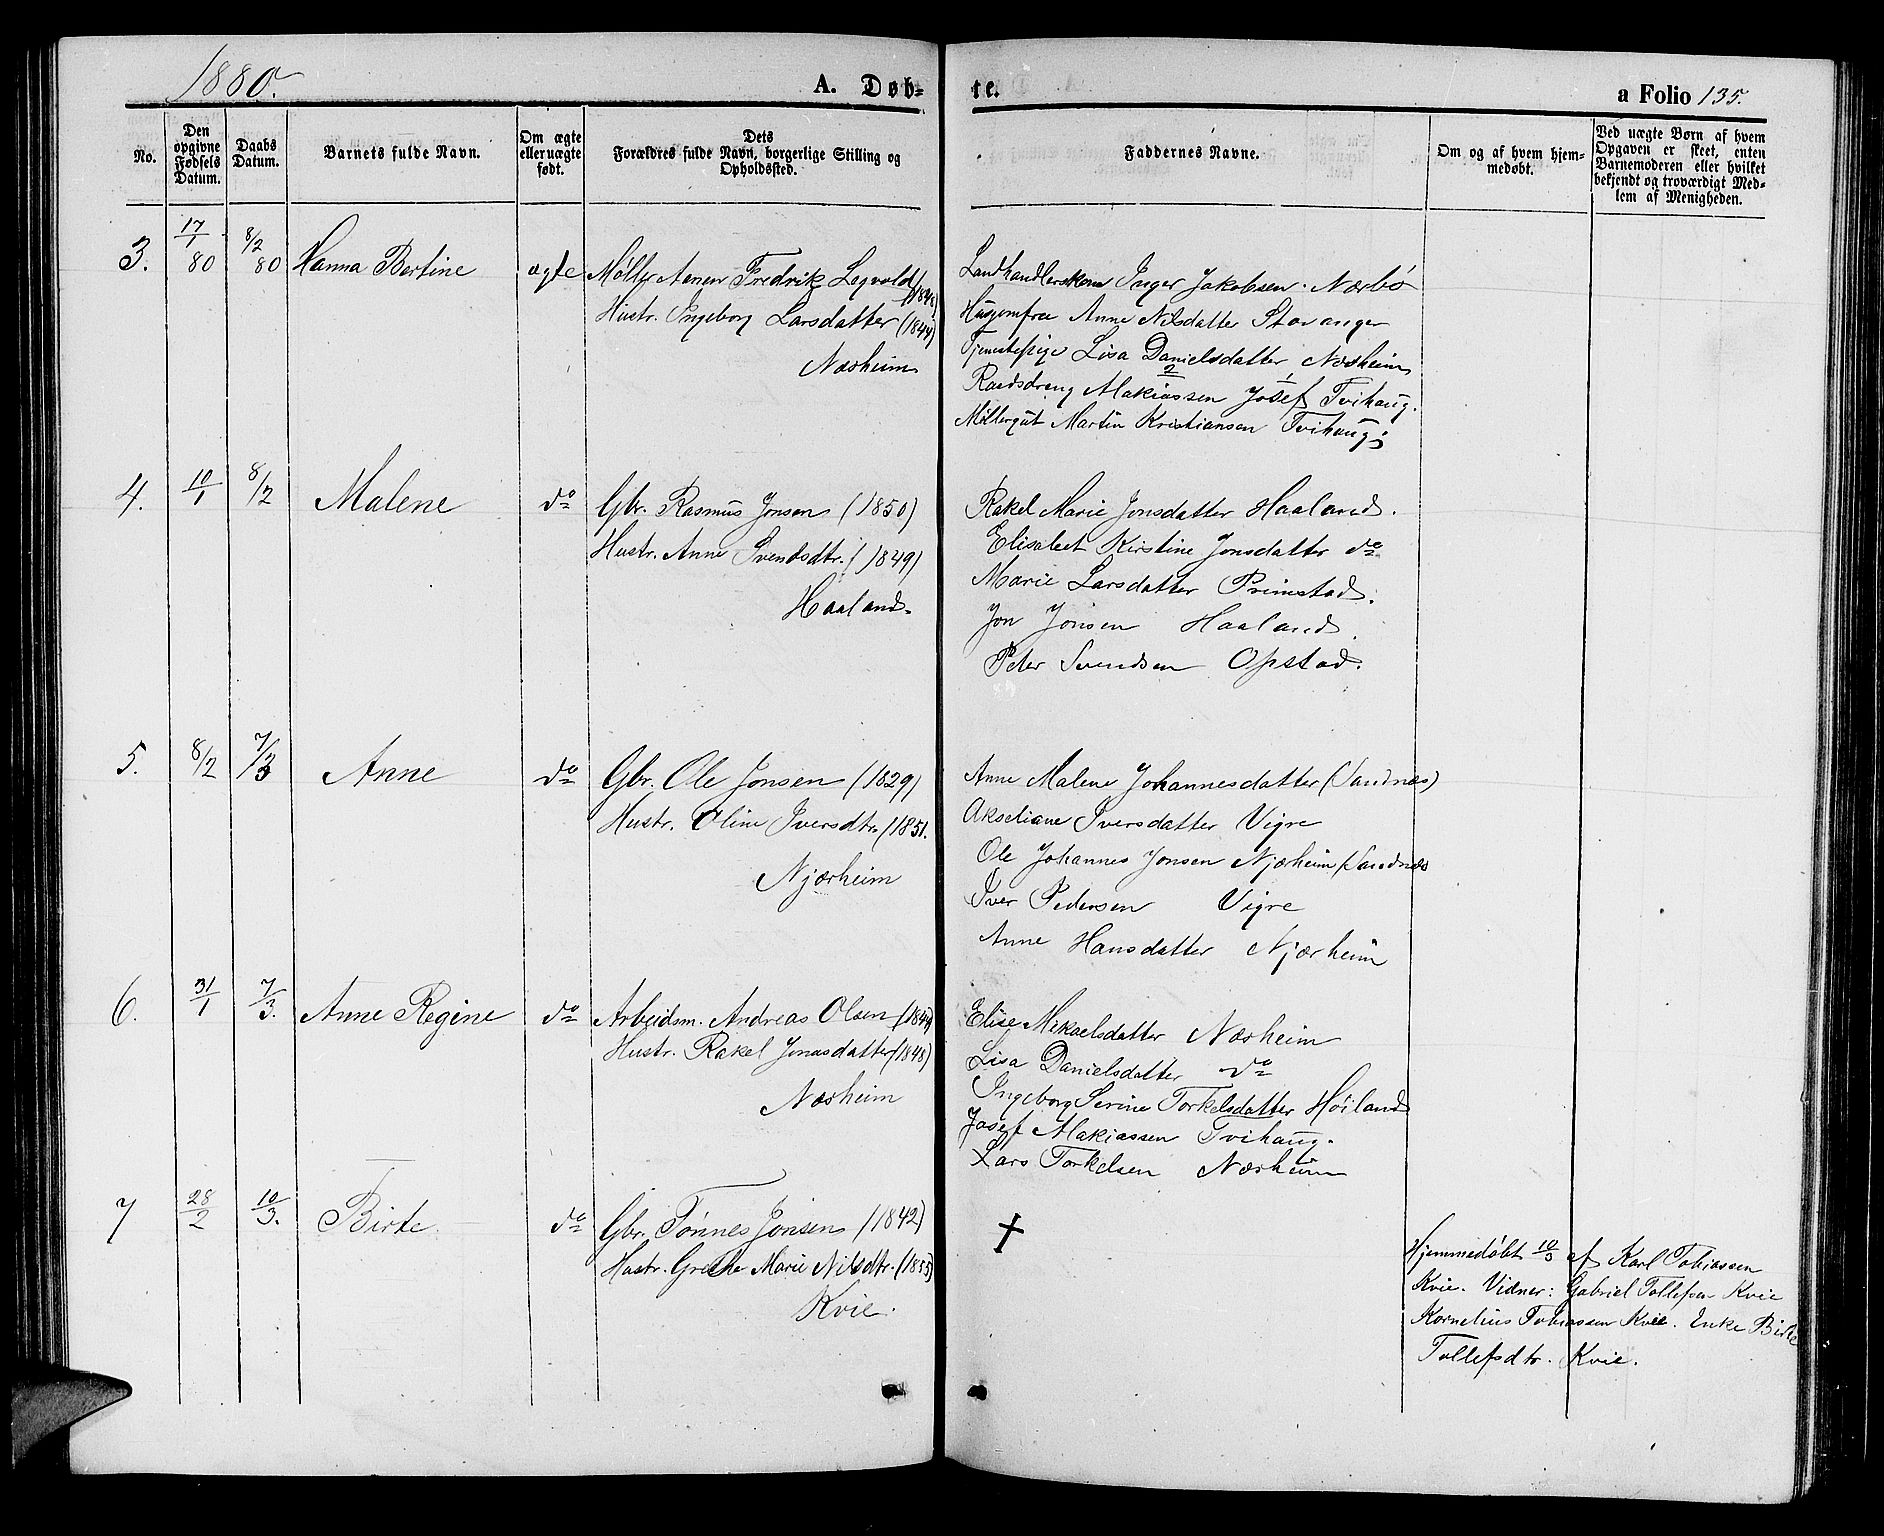 1880.
A. Døb-
te.
a Folio 135.
No.
Den opgivne Fødsels Datum.
Daabs Datum.
Barnets fulde Navn.
Om ægte eller uægte født.
Dets Forældres fulde Navn, borgerlige Stilling og Opholdssted.
Faddernes Navne.
Om og af hvem hjemmedøbt.
Ved uægte Børn af hvem Opgaven er skeet, enten Barnemoderen eller hvilket bekjendt og troværdigt Medlem af Menigheden.
3. 17/1 80 8/2 80 Hanna Bertine ægte
Møller Fredrik
Hustr. Ingeborg Larsdatter (1844)
Nærheim
Landhandlerkone Inger Jakobsen. Nærbø
Husjomfru Anne Nilsdatter Stavanger
Tjenestepige Lisa Danielsdatter, Nærheim
Makiassen 2 Josef 1 Tvihaug.
Møllergut Martin Kristiansen Tvihaug.
4. 10/1 8/2 Malene do
Gbr. Rasmus Jonsen (1850)
Hustr. Anne Svendsdtr. (1849)
Haaland.
Rakel Marie Jonsdatter Haaland.
Elisabet Kirstine Jonsdatter do
Marie Larsdatter Primstad.
Jon Jonsen Haaland.
Peder Svendsen Opstad.
5. 8/2 7/3 Anne do
Gbr. Ole Jonsen (1829)
Hustr. Oline Iversdtr. (1851.
Njærheim
Anne Malene Johannesdatter (Sandnæs)
Akseliane Iversdatter Vigre
Ole Johannes Jonsen Njærheim (Sandnæs
Iver Pedersen Vigre
Anne Hansdatter Njærheim
6. 31/1 7/3. Anne Regine do
Arbeidsm. Andreas Olsen (1844)
Hustr. Rakel Jonasdatter (1848)
Nærheim
Elise Mikaelsdatter Nærheim
Lisa Danielsdatter do
Ingeborg Serine Torkelsdatter Høiland
Josef Makiassen Tvihaug.
Lars Torkelsen Nærheim
7 28/2 10/3. Birte do
Gbr. Tønnes Jonsen (1842)
Hustr. Grethe Marie Nilsdtr. (1855)
Kvie.
Hjemmedøbt 10/3 af Karl Tobiassen
Kvie. Vidner: Gabriel Tollefsen Kvie
Kornelius Tobiassen Kvie. Enke Birte
Tollefsdtr. Kvie.